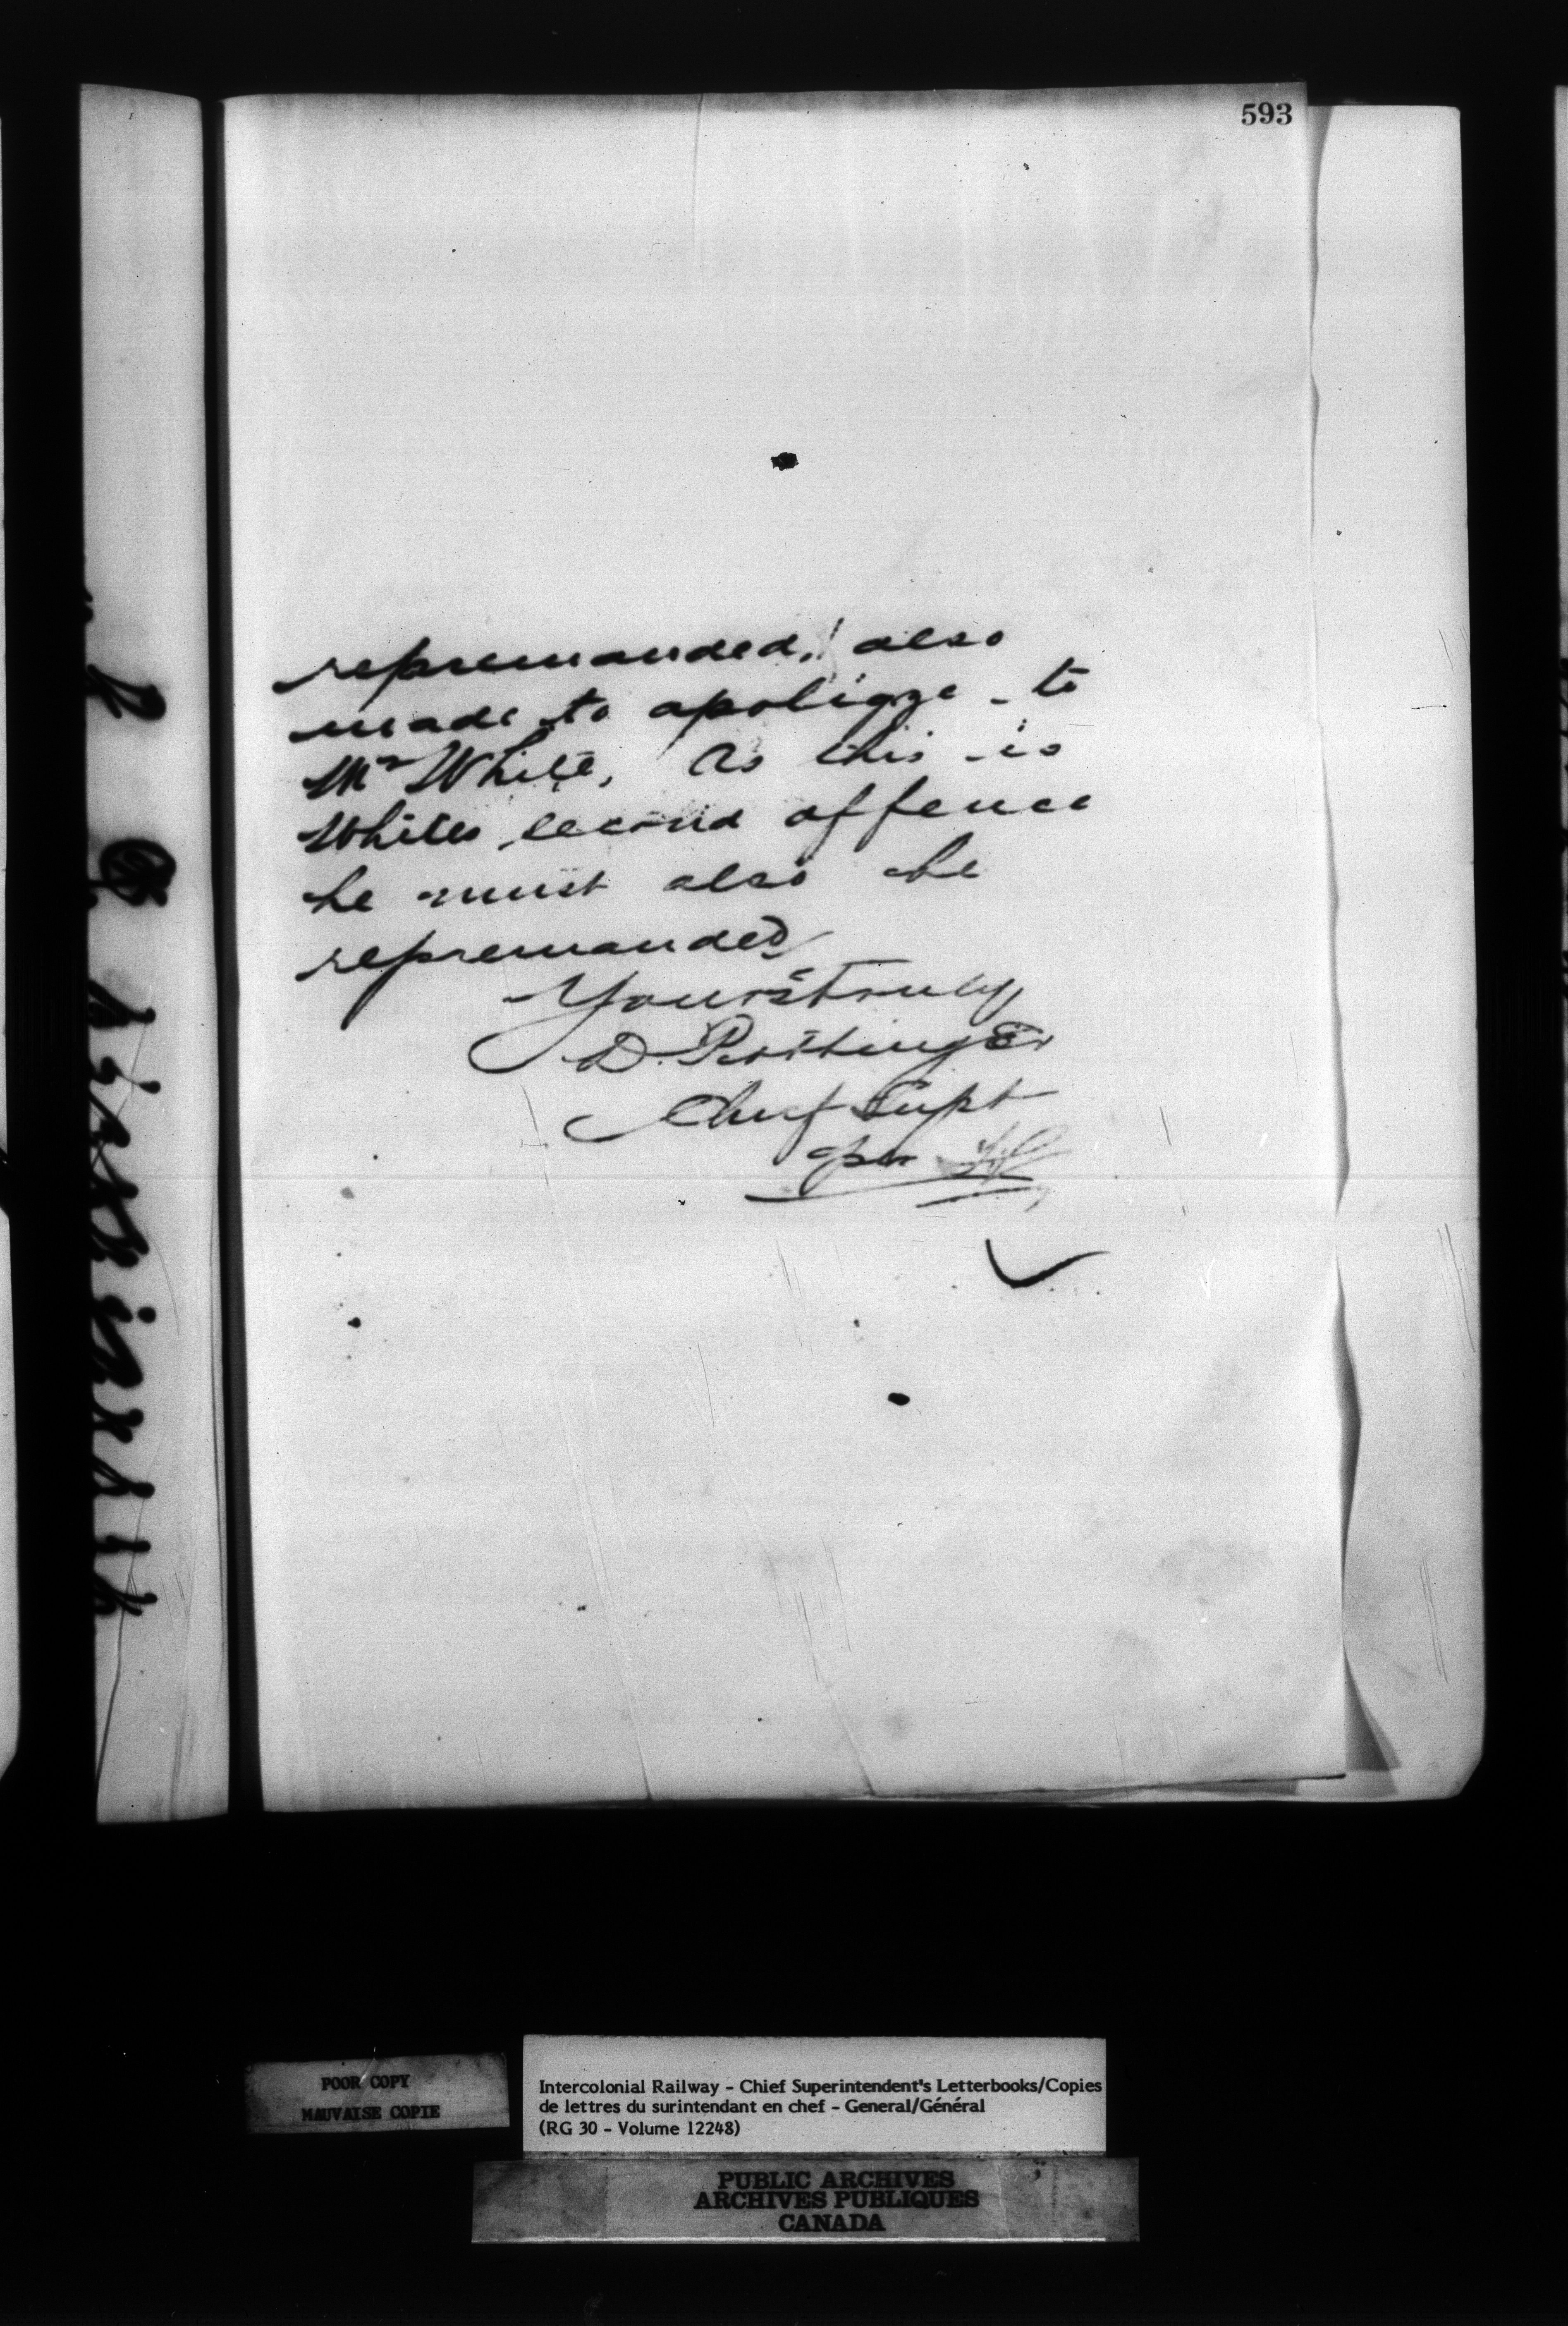 593
repremanded, also
made to apoligze to
Mr White, As this is
Whites second offence
he must also be
repremanded
Yours truly
D. Pottinger
Chief Supt
per
POOR COPY
MAUVAISE COPIE
Intercolonial Railway - Chief Superintendent's Letterbooks/Copies
de lettres du surintendant en chef - General/Général
(RG 30 - Volume 12248)
PUBLIC ARCHIVES
ARCHIVES PUBLIQUES
CANADA